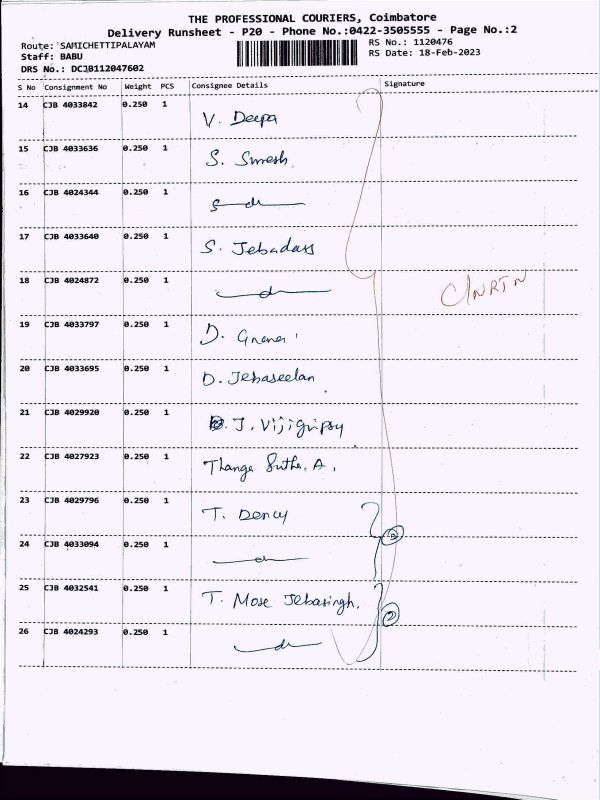 THE PROFESSIONAL COURIERS, Coimbatore
Delivery Runsheet - P20 - Phone No.:0422-3505555 - Page No.:2
Route: SAMICHETTIPALAYAM
RS No.: 1120476
Staff: BABU
RS Date: 18-Feb-2023
DRS No.: DCJB112047602
S No Consignment No Weight PCS Consignee Details Signature
14 CJB 4033842 0.250 1 V. Deepa
15 CJB 4033636 0.250 1 S. Suresh
16 CJB 4024344 0.250 1
17 CJB 4033640 0.250 1 S. Jebadass
18 CJB 4024872 0.250 1
19 CJB 4033797 0.250 1 D.
20 CJB 4033695 0.250 1 D. Jebaseelan
21 CJB 4029920 0.250 1 J.
22 CJB 4027923 0.250 1 A.
23 CJB 4029796 0.250 1 T. Dency
24 CJB 4033094 0.250 1
25 CJB 4032541 0.250 1 T. Mose Jebasingh.
2
26 CJB 4024293 0.250 1